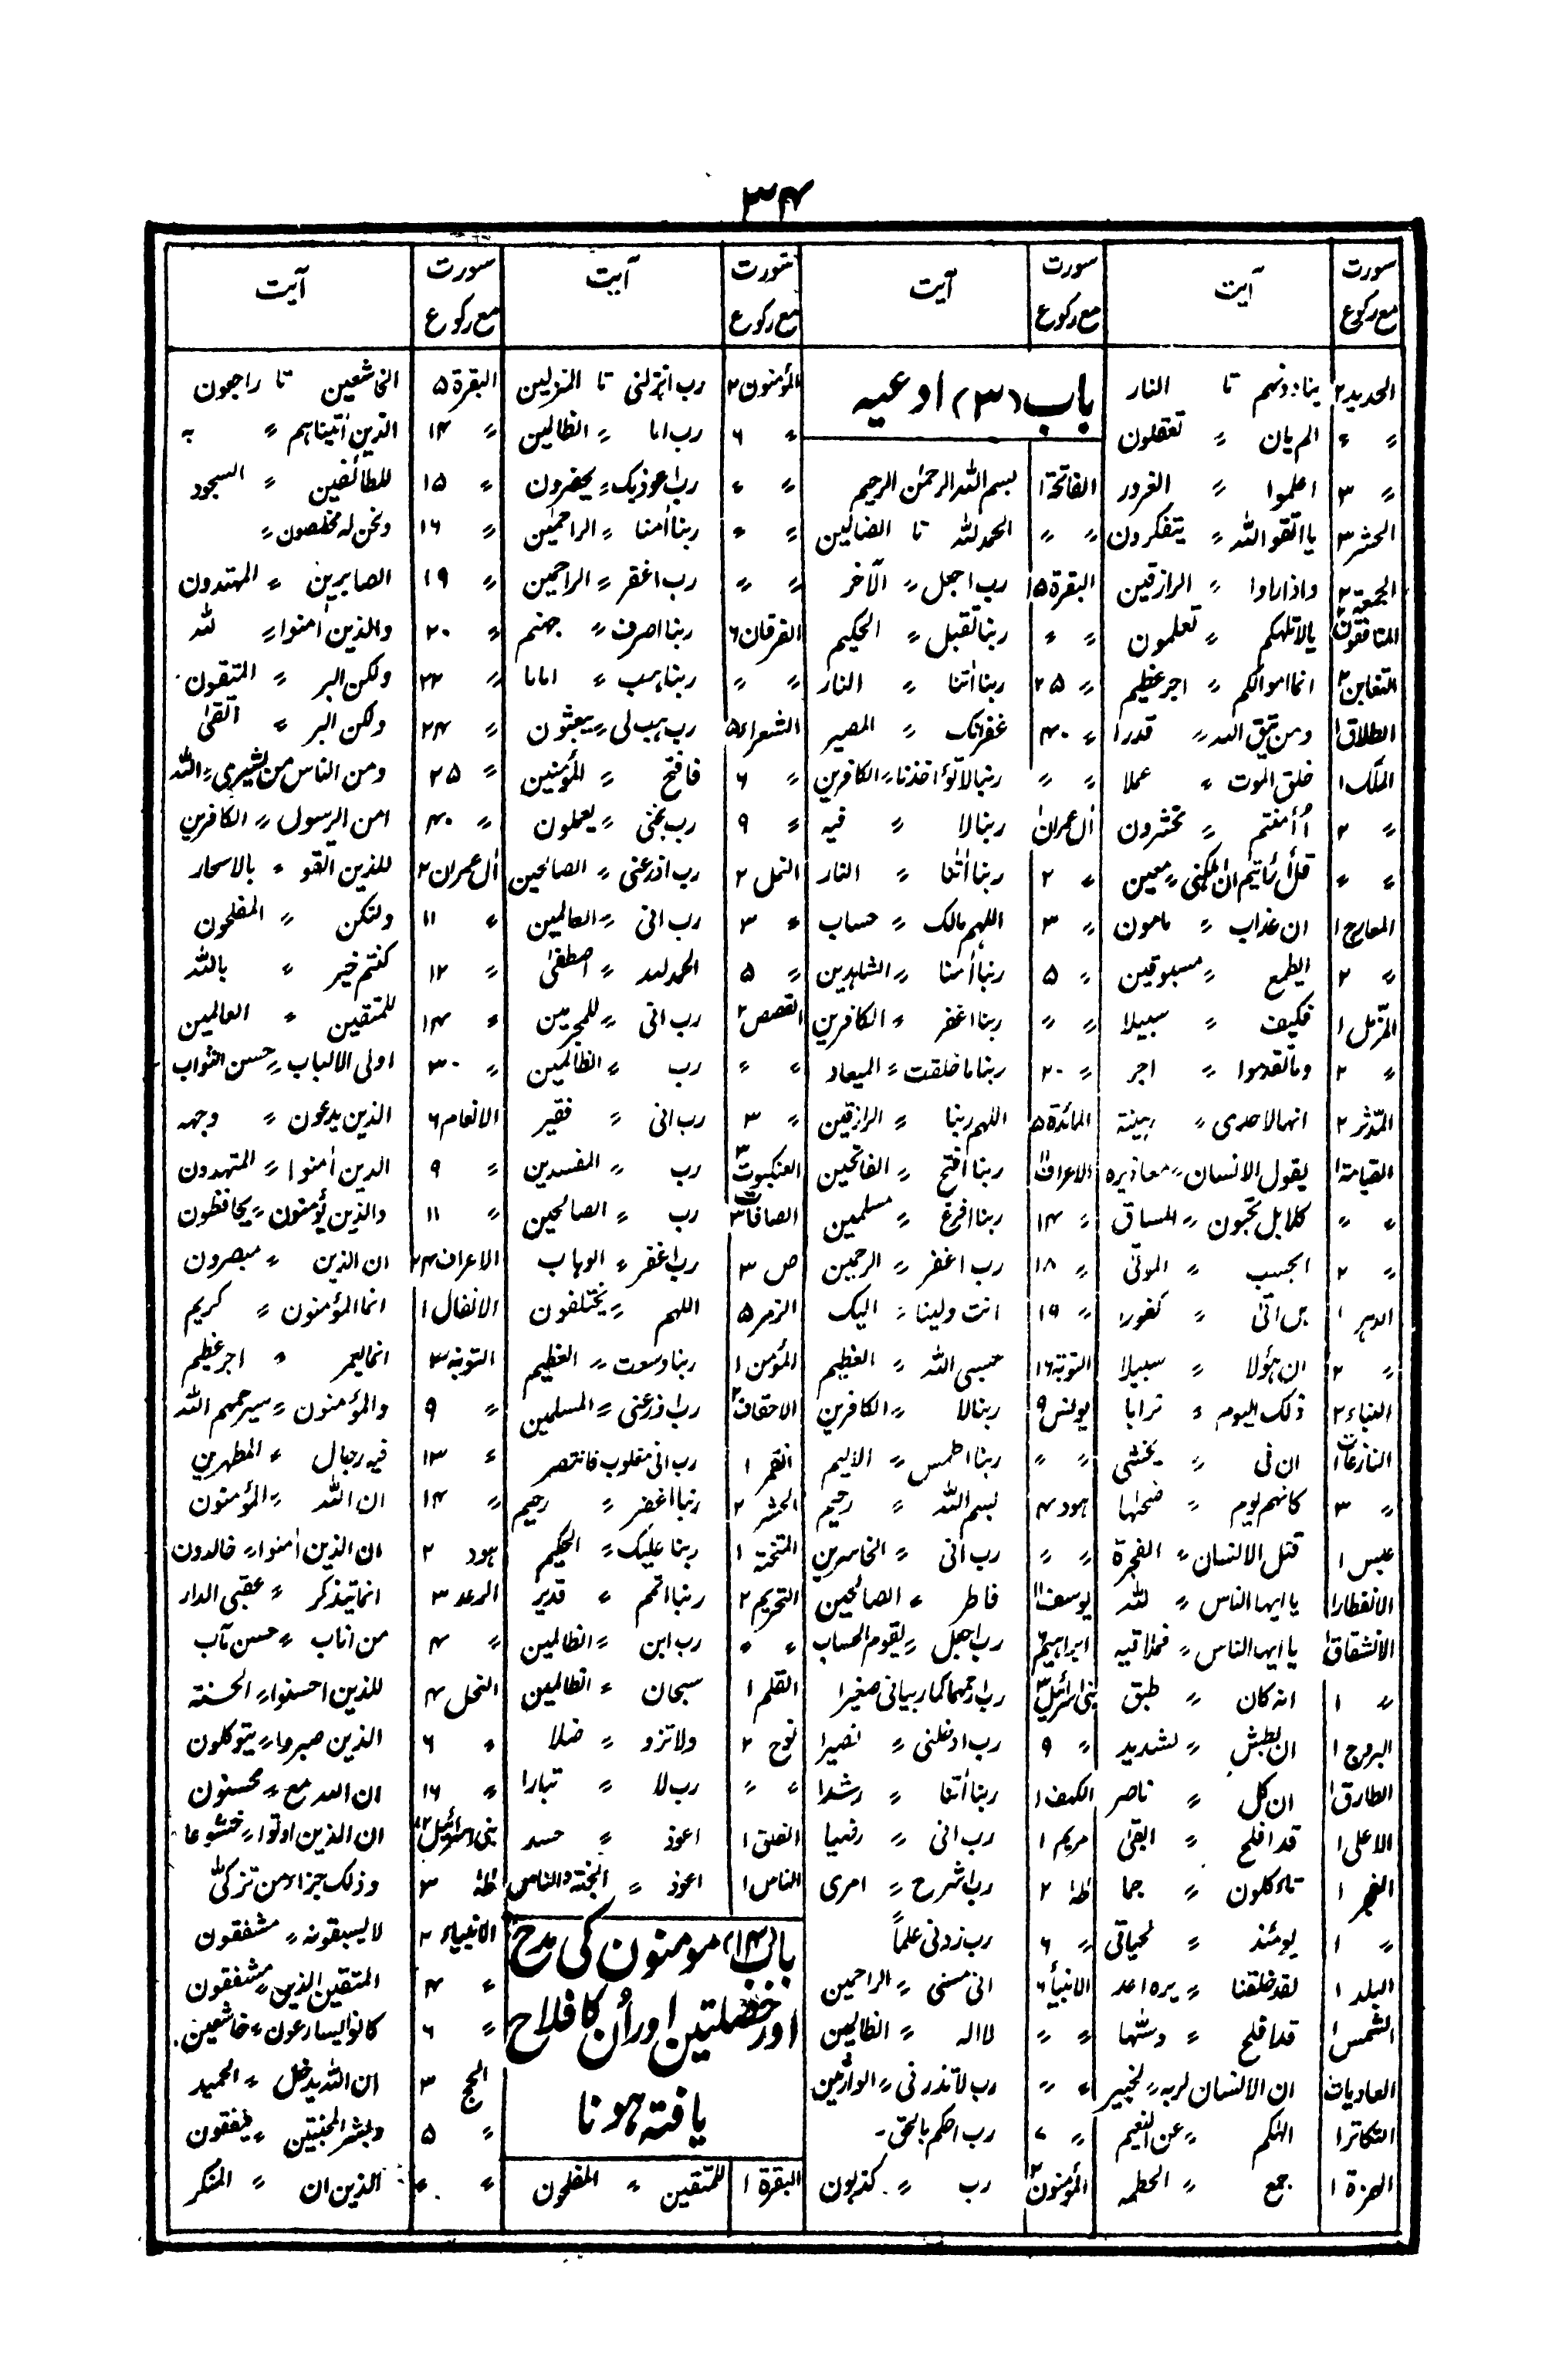 ۳۴
سورت مع رکوع | آیت | سورت مع رکوع | آیت | سورت مع رکوع | آیت | سورت مع رکوع | آیت
الحدید ۲ ینادونہم تا النار
〃 〃 الم یان 〃 تعقلون
〃 ۳ اعلموا 〃 الغرور
الحشر ۳ یا اتقو اللہ 〃 یتفکرون
الجمعة ۲ واذا راوا 〃 الرازقین
المنافقون ۲ یا لا تلہکم 〃 تعلمون
التغابن ۲ انما اموالکم 〃 اجر عظیم
الطلاق ۱ ومن یتق اللہ 〃 قدرا
الملک ۱ خلق الموت 〃 عملا
〃 ۲ أأمنتم 〃 تحشرون
〃 〃 قل أرأیتم ان اہلکنی 〃 معین
المعارج ۱ ان عذاب 〃 مامون
〃 ۲ ایطمع 〃 مسبوقین
المزمل ۱ فکیف 〃 سبیلا
〃 ۲ وما تقدموا 〃 اجر
المدثر ۲ انہا لاحدی 〃 رہینة
القیامة ۱ یقول الانسان 〃 معاذیرہ
〃 〃 کلا بل تحبون 〃 المساق
〃 ۲ ایحسب 〃 الموتی
الدہر ۱ ہل اتی 〃 کفورا
〃 ۲ ان ہؤلا 〃 سبیلا
النباء ۲ ذلک الیوم 〃 ترابا
النازعات ۱ ان فی 〃 یخشی
〃 ۳ کانہم یوم 〃 ضحٰہا
عبس ۱ قتل الانسان 〃 الفجرة
الانفطار ۱ یا ایہا الناس 〃 للہ
الانشقاق ۱ یا ایہا الناس 〃 فملاقیہ
〃 ۱ انہ کان 〃 طبق
البروج ۱ ان بطش 〃 لشدید
الطارق ۱ ان کل 〃 ناصر
الاعلی ۱ قد افلح 〃 ابقی
الفجر ۱ تاءکلون 〃 جما
〃 ۱ یومئذ 〃 لحیاتی
البلد ۱ لقد خلقنا 〃 یرہ احد
الشمس ۱ قد افلح 〃 دسّٰہا
العادیات ان الانسان لربہ 〃 لخبیر
التکاثر ۱ الہٰکم 〃 عن النعیم
الہمزة ۱ جمع 〃 الحطمہ
باب (۳) ادعیہ
الفاتحة ۱ بسم اللہ الرحمٰن الرحیم
〃 〃 الحمد للہ تا الضالین
البقرة ۱۵ رب اجعل 〃 الآخر
〃 〃 ربنا تقبل 〃 الحکیم
〃 ۲۵ ربنا آتنا 〃 النار
〃 ۴۰ غفرانک 〃 المصیر
〃 〃 ربنا لا تؤاخذنا 〃 الکافرین
اٰل عمران ۱ ربنا لا 〃 فیہ
〃 ۲ ربنا اننا 〃 النار
〃 ۳ اللہم مالک 〃 حساب
〃 ۵ ربنا أمنا 〃 الشاہدین
〃 〃 ربنا اغفر 〃 الکافرین
〃 ۲۰ ربنا ما خلقت 〃 المیعاد
المائدة ۵ اللہم ربنا 〃 الرازقین
الاعراف ۱ ربنا افتح 〃 الفاتحین
〃 ۱۴ ربنا افرغ 〃 مسلمین
〃 ۱۸ رب اغفر 〃 الرحمین
〃 ۱۹ انت ولینا 〃 الیک
التوبة ۱۶ حسبی اللہ 〃 العظیم
یونس ۹ ربنا لا 〃 الکافرین
〃 〃 ربنا اطمس 〃 الالیم
ہود ۴ بسم اللہ 〃 رحیم
〃 〃 رب انی 〃 الخاسرین
یوسف ۱۱ فاطر 〃 الصالحین
ابراہیم ۶ رب اجعل 〃 یقوم الحساب
بنی اسرائیل ۳ رب ارحمہما کما ربیانی صغیرا
〃 ۹ رب ادخلنی 〃 نصیرا
الکہف ۱ ربنا آتنا 〃 رشدا
مریم ۱ رب انی 〃 رضیا
طہٰ ۲ رب اشرح 〃 امری
〃 ۶ رب زدنی علماً
الانبیأ ۶ انی مسنی 〃 الراحمین
〃 〃 لا الہ 〃 الظالمین
〃 〃 رب لا تذرنی 〃 الوارثین
〃 ۷ رب احکم بالحق۔
المؤمنون ۲ رب 〃 کذبون
المؤمنون ۲ رب انزلنی تا المنزلین
〃 ۶ رب اما 〃 الظالمین
〃 〃 رب اعوذ بک 〃 یحضرون
〃 〃 ربنا أمنا 〃 الراحمین
〃 〃 رب اغفر 〃 الراحمین
الفرقان ۶ ربنا اصرف 〃 جہنم
〃 〃 ربنا ہب 〃 اماما
الشعراء ۵ رب ہب لی 〃 یبعثون
〃 ۶ فافتح 〃 المؤمنین
〃 ۹ رب نجنی 〃 یعملون
النمل ۲ رب اوزعنی 〃 الصالحین
〃 ۳ رب انی 〃 العالمین
〃 ۵ الحمد للہ 〃 اصطفیٰ
القصص ۲ رب انی 〃 للمجرمین
〃 〃 رب 〃 الظالمین
〃 ۳ رب انی 〃 فقیر
العنکبوت ۳ رب 〃 المفسدین
الصافات ۳ رب 〃 الصالحین
ص ۳ رب اغفر 〃 الوہاب
الزمر ۵ اللہم 〃 یختلفون
المؤمن ۱ ربنا وسعت 〃 العظیم
الاحقاف ۲ رب اوزعنی 〃 المسلمین
القمر ۱ رب انی مغلوب فانتصر
الحشر ۲ ربنا اغفر 〃 رحیم
الممتحنة ۱ ربنا علیک 〃 الحکیم
التحریم ۲ ربنا اتمم 〃 قدیر
〃 〃 رب ابن 〃 الظالمین
القلم ۱ سبحان 〃 الظالمین
نوح ۲ ولا تزد 〃 ضلا
〃 〃 رب لا 〃 تبارا
الفلق ۱ اعوذ 〃 حسد
الناس ۱ اعوذ 〃 الجنة والناس
باب (۴) مومنون کی مدح
اور خصلتین اور اُن کا فلاح
یافتہ ہونا
البقرة ۱ للمتقین 〃 المفلحون
البقرة ۵ الخاشعین تا راجعون
〃 ۱۴ الذین اٰتیناہم 〃 بہ
〃 ۱۵ للطائفین 〃 السجود
〃 ۱۶ ونحن لہ مخلصون 〃
〃 ۱۹ الصابرین 〃 المہتدون
〃 ۲۰ والذین أمنوا 〃 للہ
〃 ۲۲ ولکن البر 〃 المتقون
〃 ۲۴ ولکن البر 〃 اتقیٰ
〃 ۲۵ ومن الناس من یشیری 〃 اللہ
〃 ۴۰ امن الرسول 〃 الکافرین
اٰل عمران ۲ للذین اتقو 〃 بالاسحار
〃 ۱۱ ولتکن 〃 المفلحون
〃 ۱۲ کنتم خیر 〃 باللہ
〃 ۱۴ للمتقین 〃 العالمین
〃 ۳۰ اولی الالباب 〃 حسن الثواب
الانعام ۶ الذین یدعون 〃 وجہہ
〃 ۹ الذین أمنوا 〃 المتہدون
〃 ۱۱ والذین یؤمنون 〃 یحافظون
الاعراف ۲۴ ان الذین 〃 مبصرون
الانفال ۱ انما المؤمنون 〃 کریم
التوبة ۳ انما یعمر 〃 اجر عظیم
〃 ۹ والمؤمنون 〃 سیرحمہم اللہ
〃 ۱۳ فیہ رجال 〃 المطہرین
〃 ۱۴ ان اللہ 〃 المؤمنون
ہود ۲ ان الذین أمنوا 〃 خالدون
الرعد ۳ انما یتذکر 〃 عقبی الدار
〃 ۴ من اناب 〃 حسن مآب
النحل ۴ للذین احسنوا 〃 الحسنة
〃 ۶ الذین صبروا 〃 یتوکلون
〃 ۱۶ ان اللہ مع 〃 محسنون
بنی اسرائیل ۱۲ ان الذین اوتوا 〃 خشوعا
طہٰ ۳ وذلک جزاء من تزکیٰ
الانبیاء ۲ لا یسبقونہ 〃 مشفقون
〃 ۴ المتقین الذین 〃 مشفقون
〃 ۶ کانوا یسارعون 〃 خاشعین
الحج ۳ ان اللہ یدخل 〃 الحمید
〃 ۵ وبشر المخبتین 〃 ینفقون
〃 〃 الذین ان 〃 المنکر